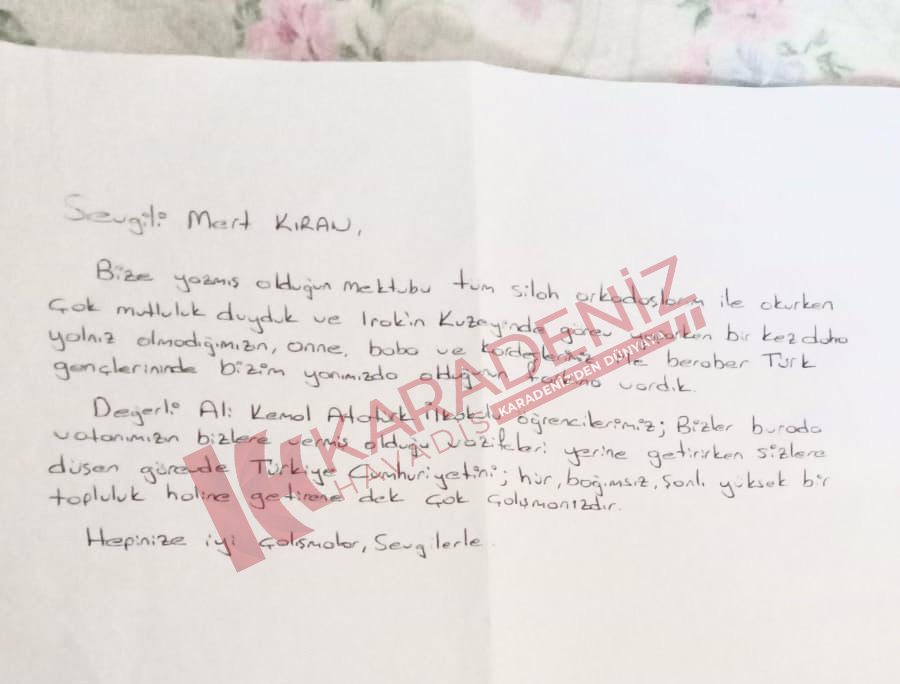 Sevgili Mert KIRAN,
Bize yazmış olduğun mektubu tüm silah arkadaşlarım ile okurken
Çok mutluluk duyduk ve Irak'ın Kuzeyinde görev yaparken bir kez daha
yalnız olmadığımızın, anne, baba ve kardeşlerimiz ile beraber Türk
gençlerininde bizim yanımızda olduğunun farkına vardık.
Değerli Ali Kemal Atatürk İlkokulu öğrencilerimiz; Bizler burada
vatanımızın bizlere vermiş olduğu vazifeleri yerine getirirken sizlere
düşen görevde Türkiye Cumhuriyetini; hür, bağımsız, şanlı yüksek bir
topluluk haline getirene dek çok çalışmanızdır.
Hepinize iyi çalışmalar, Sevgilerle.
KARADENİZ
HAVADİS
KARADENİZ'DEN DÜNYAYA